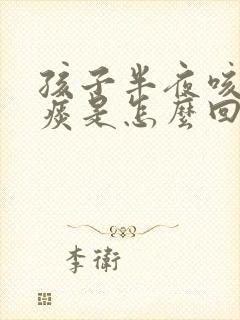 孩子半夜咳
痰是怎麼回
李衛